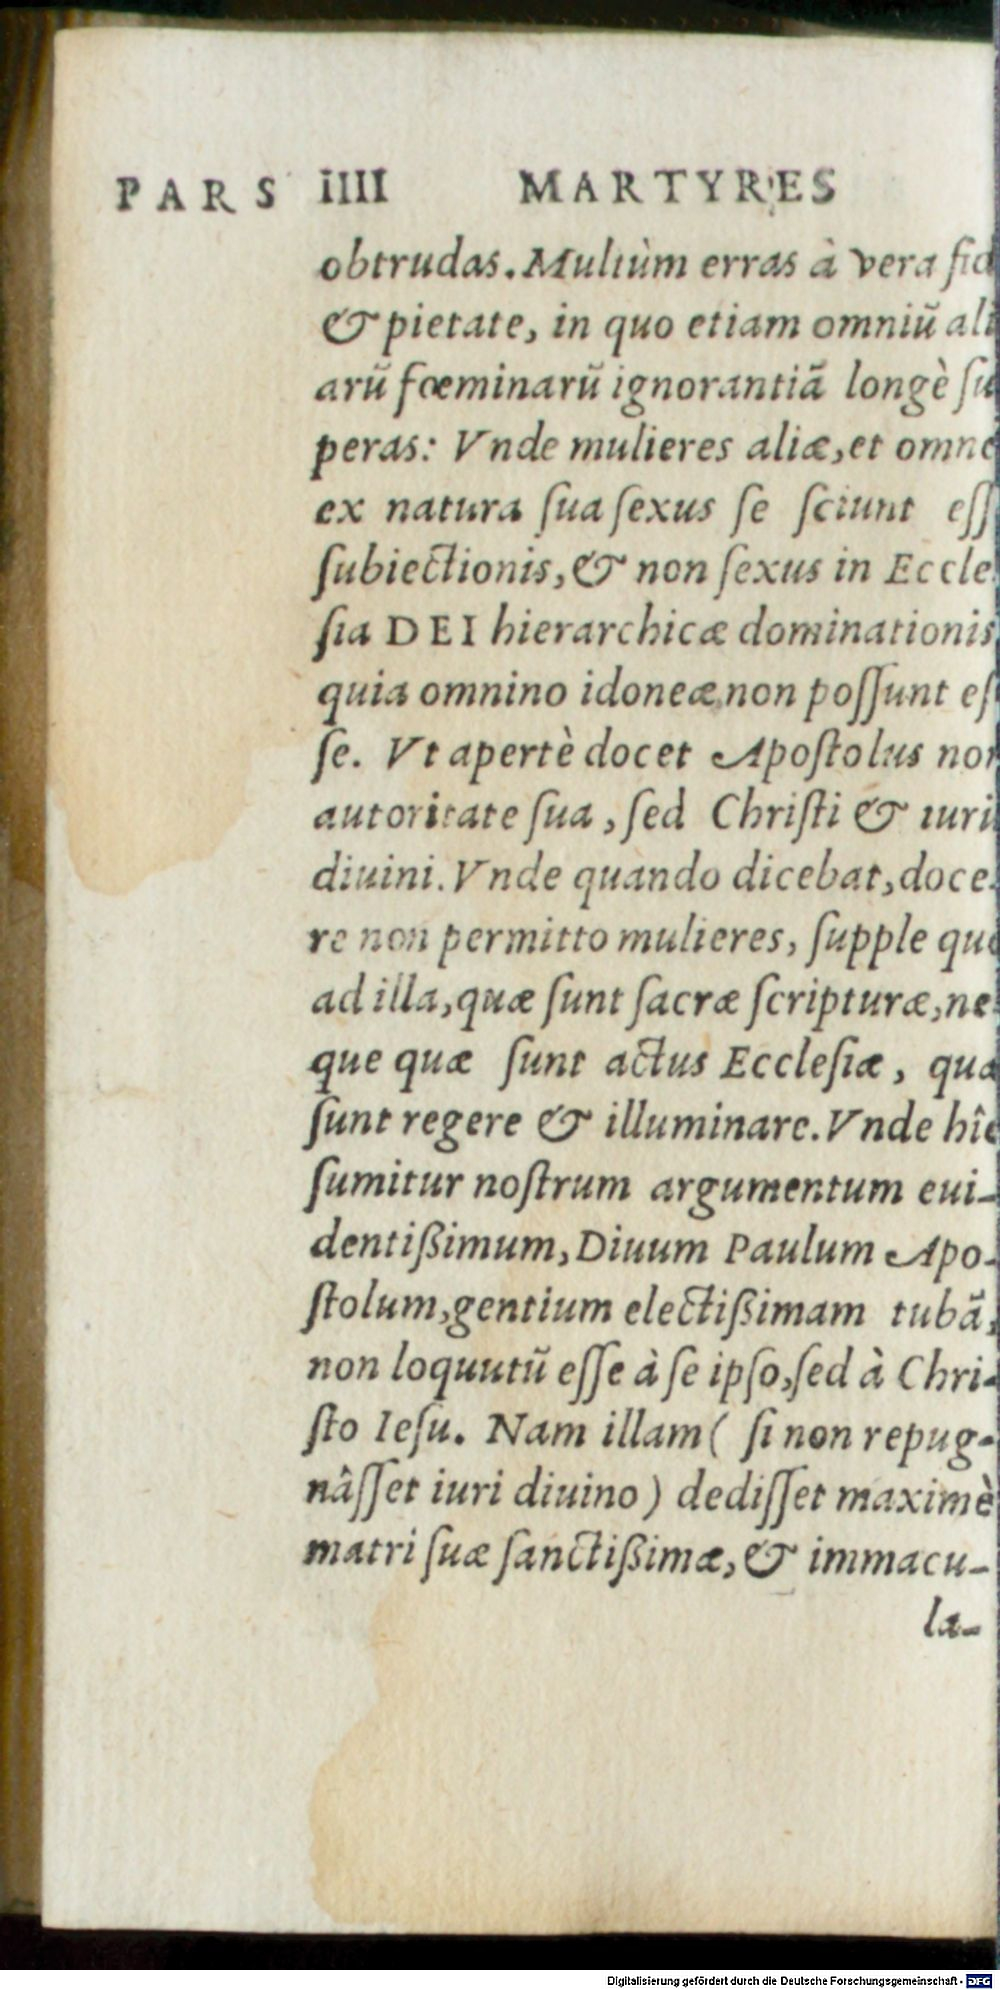 PARS IIII MARTYRES
obtrudas. Multùm erras à vera fid
& pietate, in quo etiam omniũ ali
arũ fœminarũ ignorantiã longè ſu
peras: Vnde mulieres aliæ, et omne
ex natura ſua ſexus ſe ſciunt eſſ
ſubiectionis, & non ſexus in Eccle
ſia DEI hierarchicæ dominationis
quia omnino idoneæ non poſſunt eſ
ſe. Vt apertè docet Apoſtolus non
autoritate ſua, ſed Chriſti & iuri
diuini. Vnde quando dicebat, doce
re non permitto mulieres, ſupple quo
ad illa, quæ ſunt ſacræ ſcripturæ, ne
que quæ ſunt actus Eccleſiæ, quæ
ſunt regere & illuminare. Vnde hîc
ſumitur noſtrum argumentum eui-
dentißimum, Diuum Paulum Apo-
ſtolum, gentium electißimam tubã,
non loquutũ eſſe à ſe ipſo, ſed à Chri-
ſto Ieſu. Nam illam ( ſi non repug-
nâſſet iuri diuino ) dediſſet maximè
matri ſuæ ſanctißimæ, & immacu-
la-
Digitalisierung gefördert durch die Deutsche Forschungsgemeinschaft - DFG